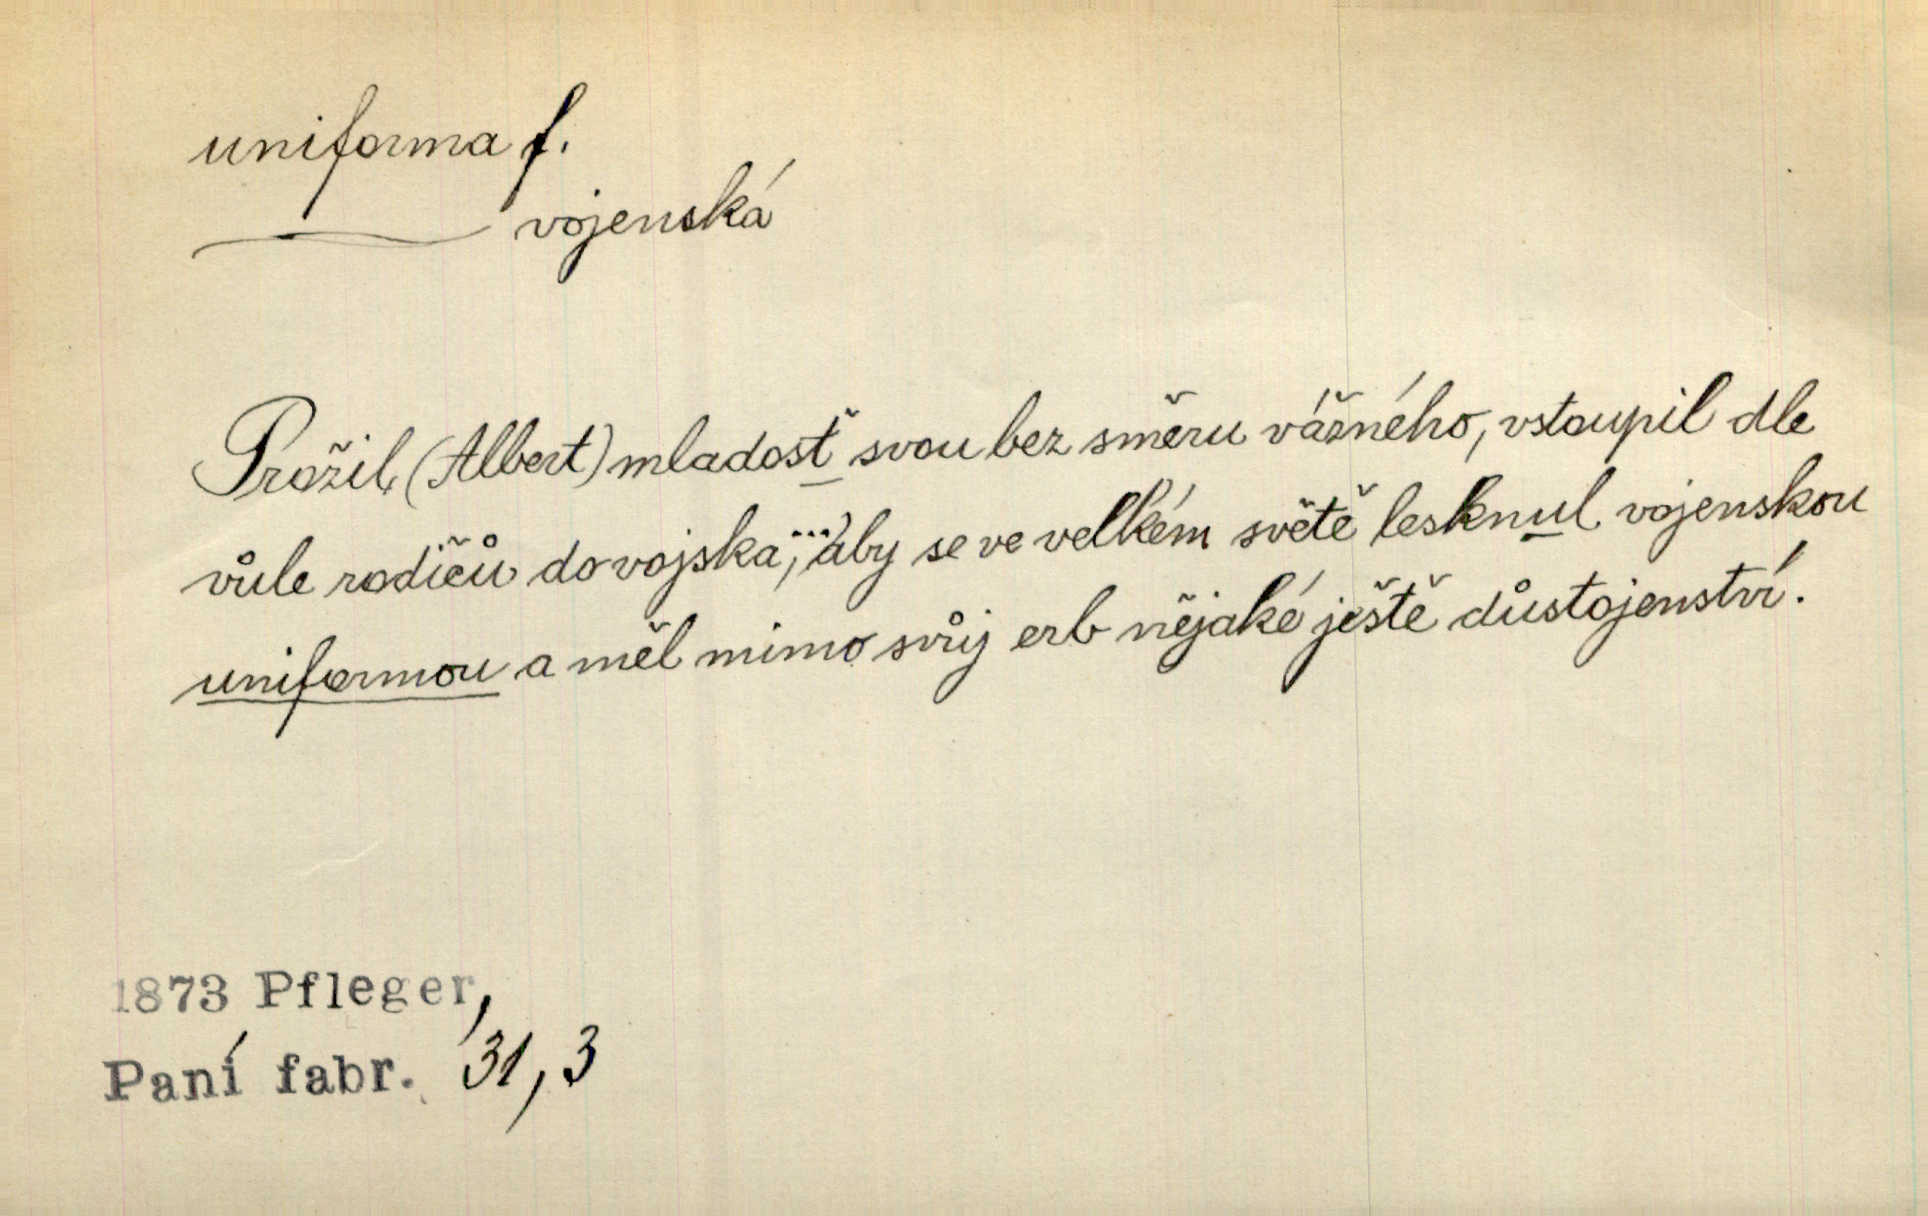 uniforma f.
——— vojenská
Prožil (Albert) mladosť svou bez směru vážného, vstoupil dle
vůle rodičů do vojska, ... aby se ve velkém světě lesknul vojenskou
uniformou a měl mimo svůj erb nějaké ještě důstojenství.
1873 Pfleger,
Paní fabr. 31, 3